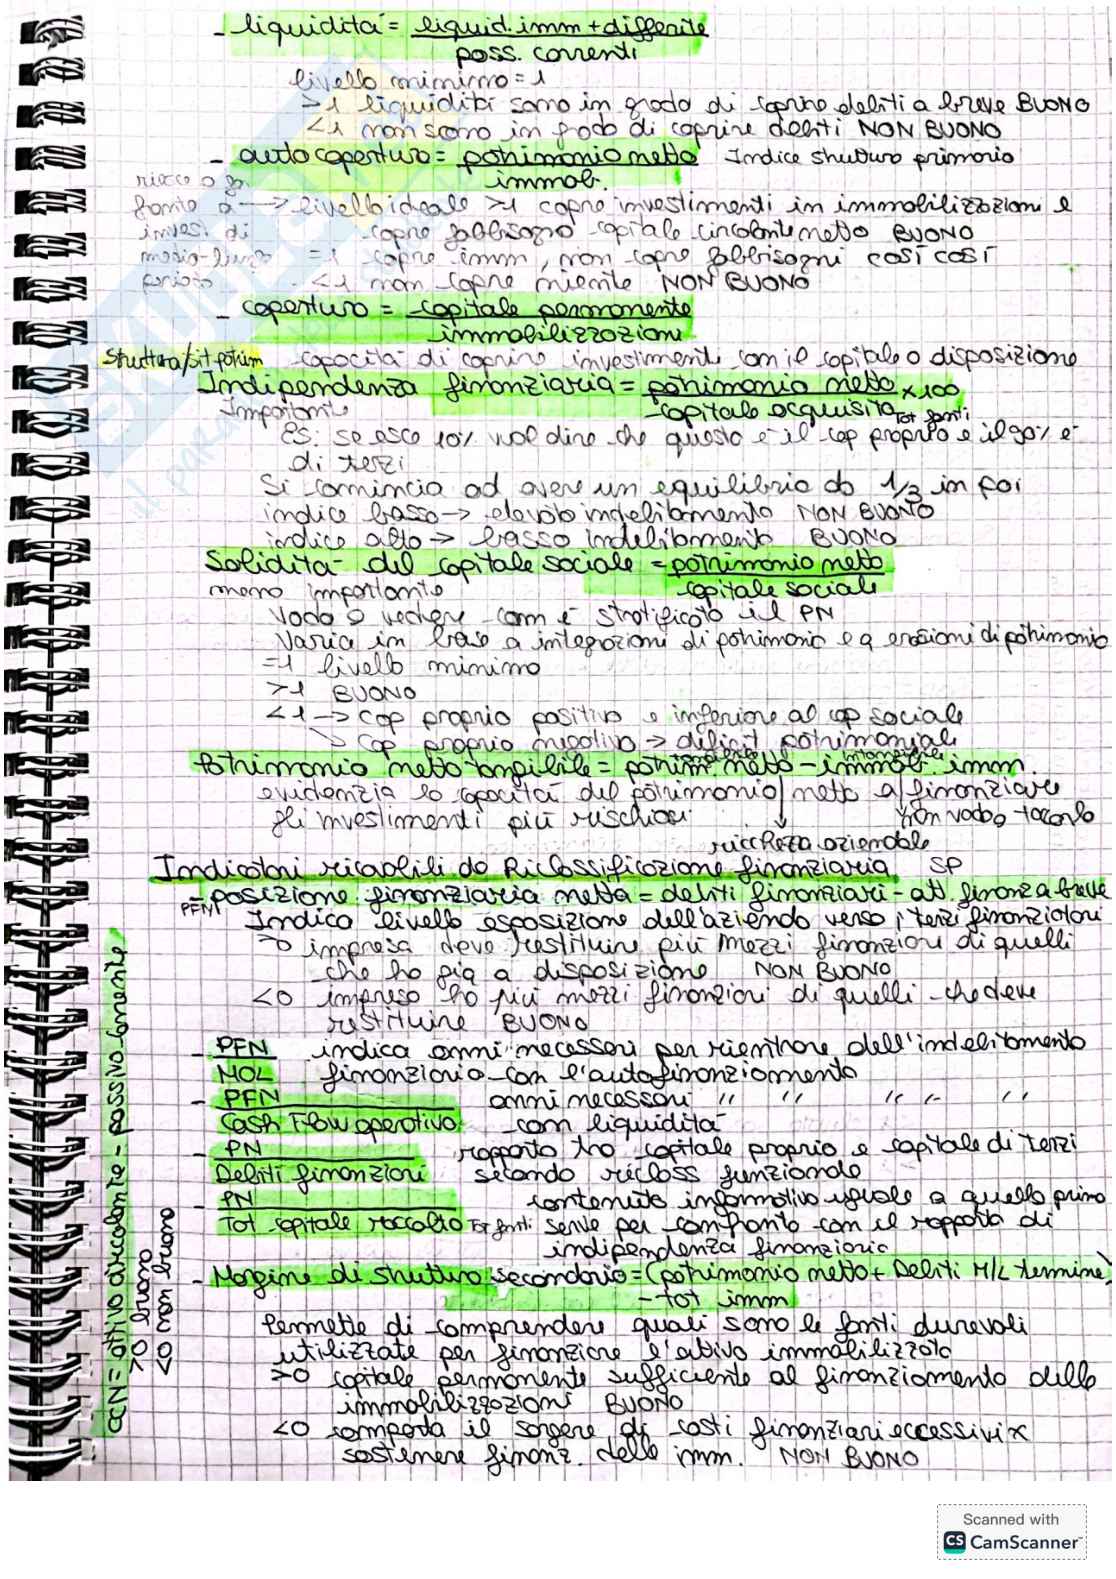 - liquidità = liquid. imm + differite
poss. correnti
livello minimo = 1
>1 liquidità sono in grado di coprire debiti a breve BUONO
<1 non sono in grado di coprire debiti NON BUONO
- autocopertura = patrimonio netto Indice struttura primario
immob.
riesce a
fronte a → livello ideale >1 copre investimenti in immobilizzazioni e
invest. di copre fabbisogno capitale circolante netto BUONO
medio-lungo =1 copre imm, non copre fabbisogni COSÌ COSÌ
periodo <1 non copre niente NON BUONO
- copertura = capitale permanente
immobilizzazioni
Struttura/sit. patrim capacità di coprire investimenti con il capitale a disposizione
Indipendenza finanziaria = patrimonio netto x 100
Importante capitale acquisito Tot fonti
Es: se esce 10% vuol dire che questo è il cap proprio e il 90% è
di terzi
Si comincia ad avere un equilibrio da 1/3 in poi
indice basso → elevato indebitamento NON BUONO
indice alto → basso indebitamento BUONO
Solidità del capitale sociale = patrimonio netto
capitale sociale
meno importante
Vado a vedere com'è stratificato il PN
Varia in base a integrazioni di patrimonio e a erosioni di patrimonio
=1 livello minimo
>1 BUONO
<1 → cap proprio positivo e inferiore al cap sociale
↘ cap proprio negativo → deficit patrimoniale
Patrimonio netto tangibile = patrim. netto - immob. imm.
intangibile
evidenzia la capacità del patrimonio netto a finanziare
gli investimenti più rischiosi non vado a toccarlo
ricchezza aziendale
Indicatori ricavabili da Riclassificazione finanziaria SP
- posizione finanziaria netta = debiti finanziari - att. finanz a breve
PFN
Indica livello esposizione dell'azienda verso i terzi finanziatori
>0 impresa deve restituire più mezzi finanziari di quelli
che ha già a disposizione NON BUONO
<0 impresa ha più mezzi finanziari di quelli che deve
restituire BUONO
- PFN indica anni necessari per rientrare dell'indebitamento
MOL finanziario con l'autofinanziamento
- PFN anni necessari " " " " "
Cash Flow operativo con liquidità
- PN rapporto tra capitale proprio e capitale di terzi
Debiti finanziari secondo riclass funzionale
- PN contenuto informativo uguale a quello prima
Tot capitale raccolto Tot fonti serve per confronto con il rapporto di
indipendenza finanziaria
- Margine di struttura secondario = (patrimonio netto + Debiti M/L termine)
- tot imm
Permette di comprendere quali sono le fonti durevoli
utilizzate per finanziare l'attivo immobilizzato
>0 capitale permanente sufficiente al finanziamento delle
immobilizzazioni BUONO
<0 comporta il sorgere di costi finanziari eccessivi x
sostenere finanz. delle imm. NON BUONO
CCN = attivo circolante - passivo corrente
>0 buono
<0 non buono
Scanned with
CS CamScanner